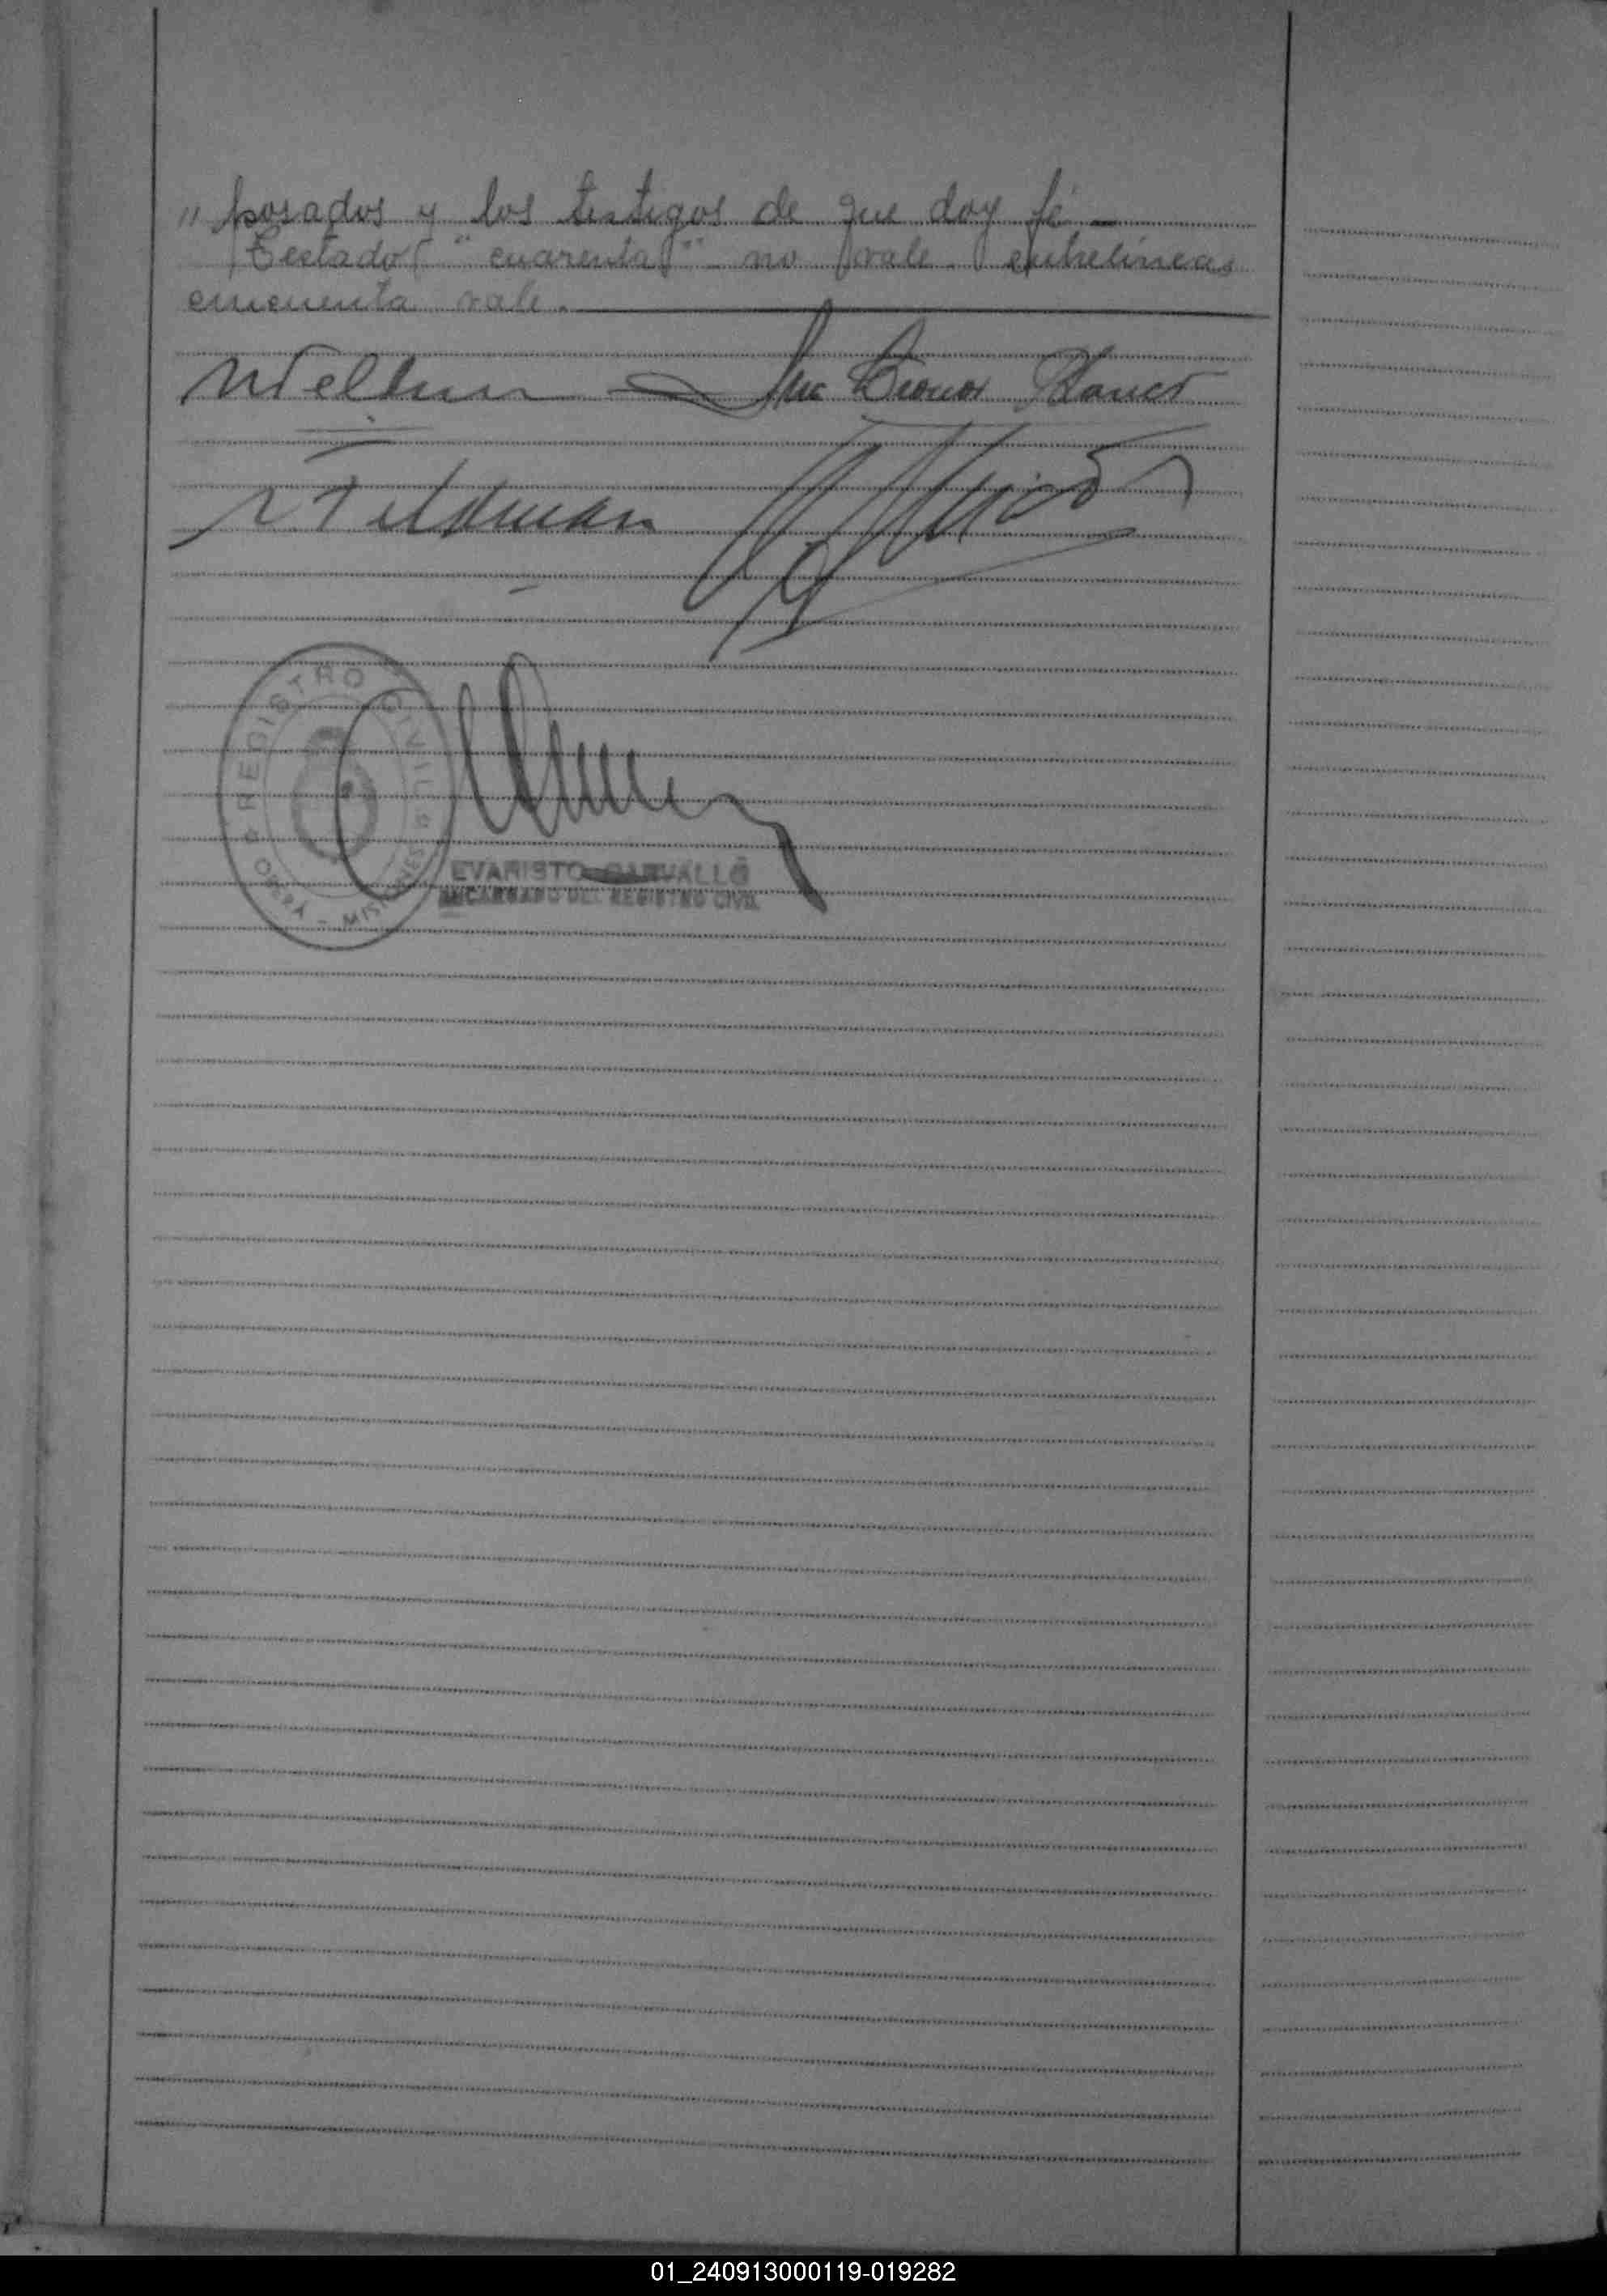 " posados y los testigos de que doy fé —
Testado "cuarenta" no vale. entrelíneas
cincuenta vale.
Blanco
REGISTRO CIVIL
OBERA - MISIONES
EVARISTO CARVALLO
ENCARGADO DEL REGISTRO CIVIL
01_240913000119-019282